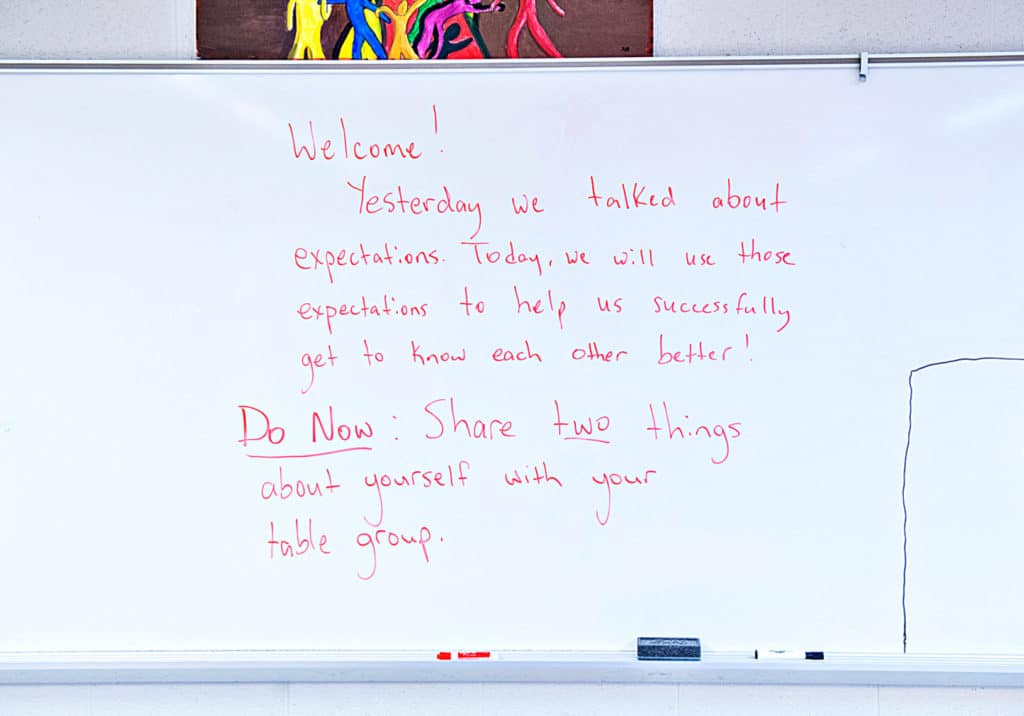 Welcome!
Yesterday we talked about
expectations. Today, we will use those
expectations to help us successfully
get to know each other better!
Do Now: Share two things
about yourself with your
table group.